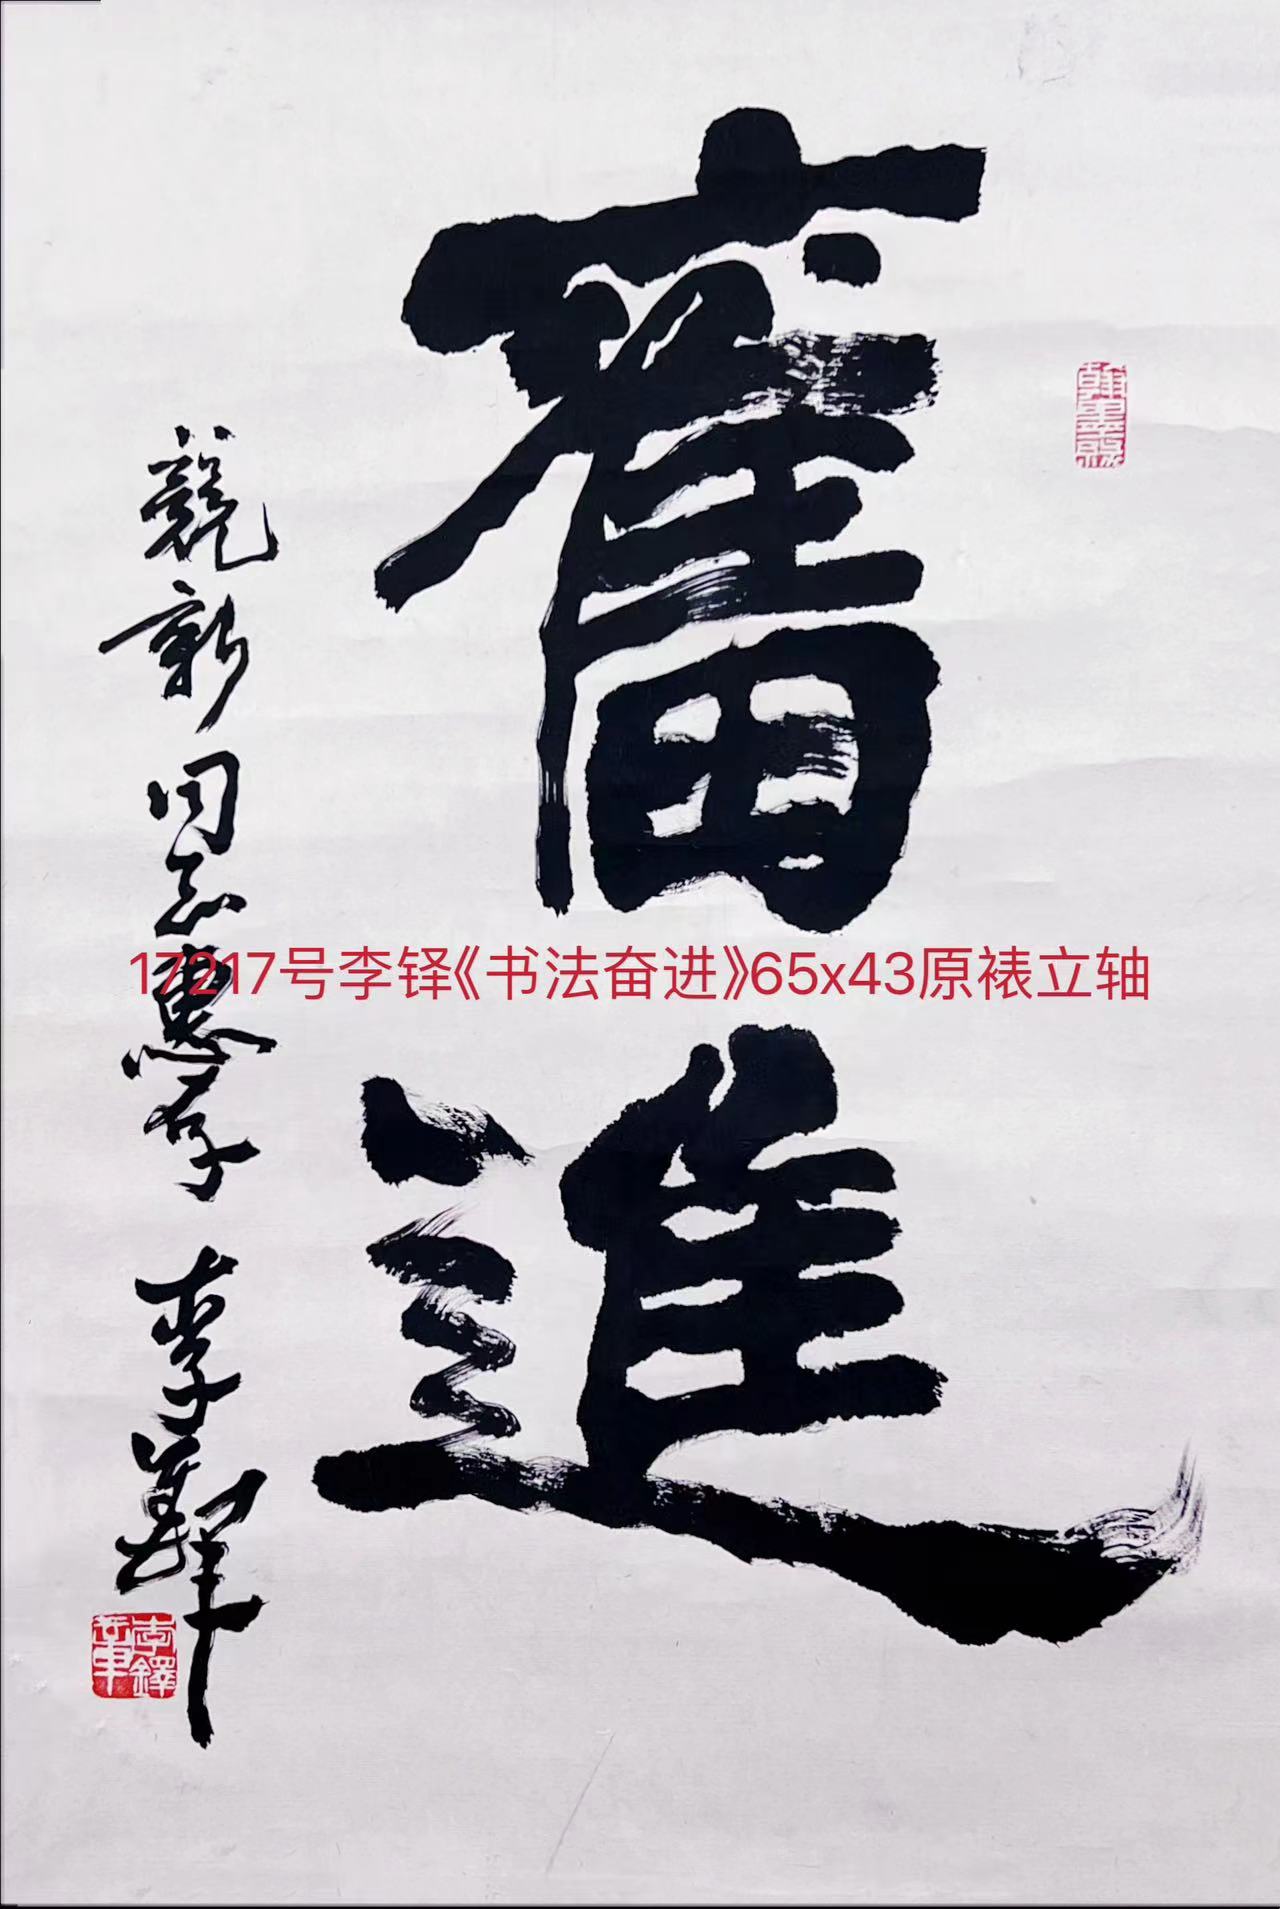 奮進
競新同志惠存 李鐸
17217号李铎《书法奋进》65x43原裱立轴
李鐸之章